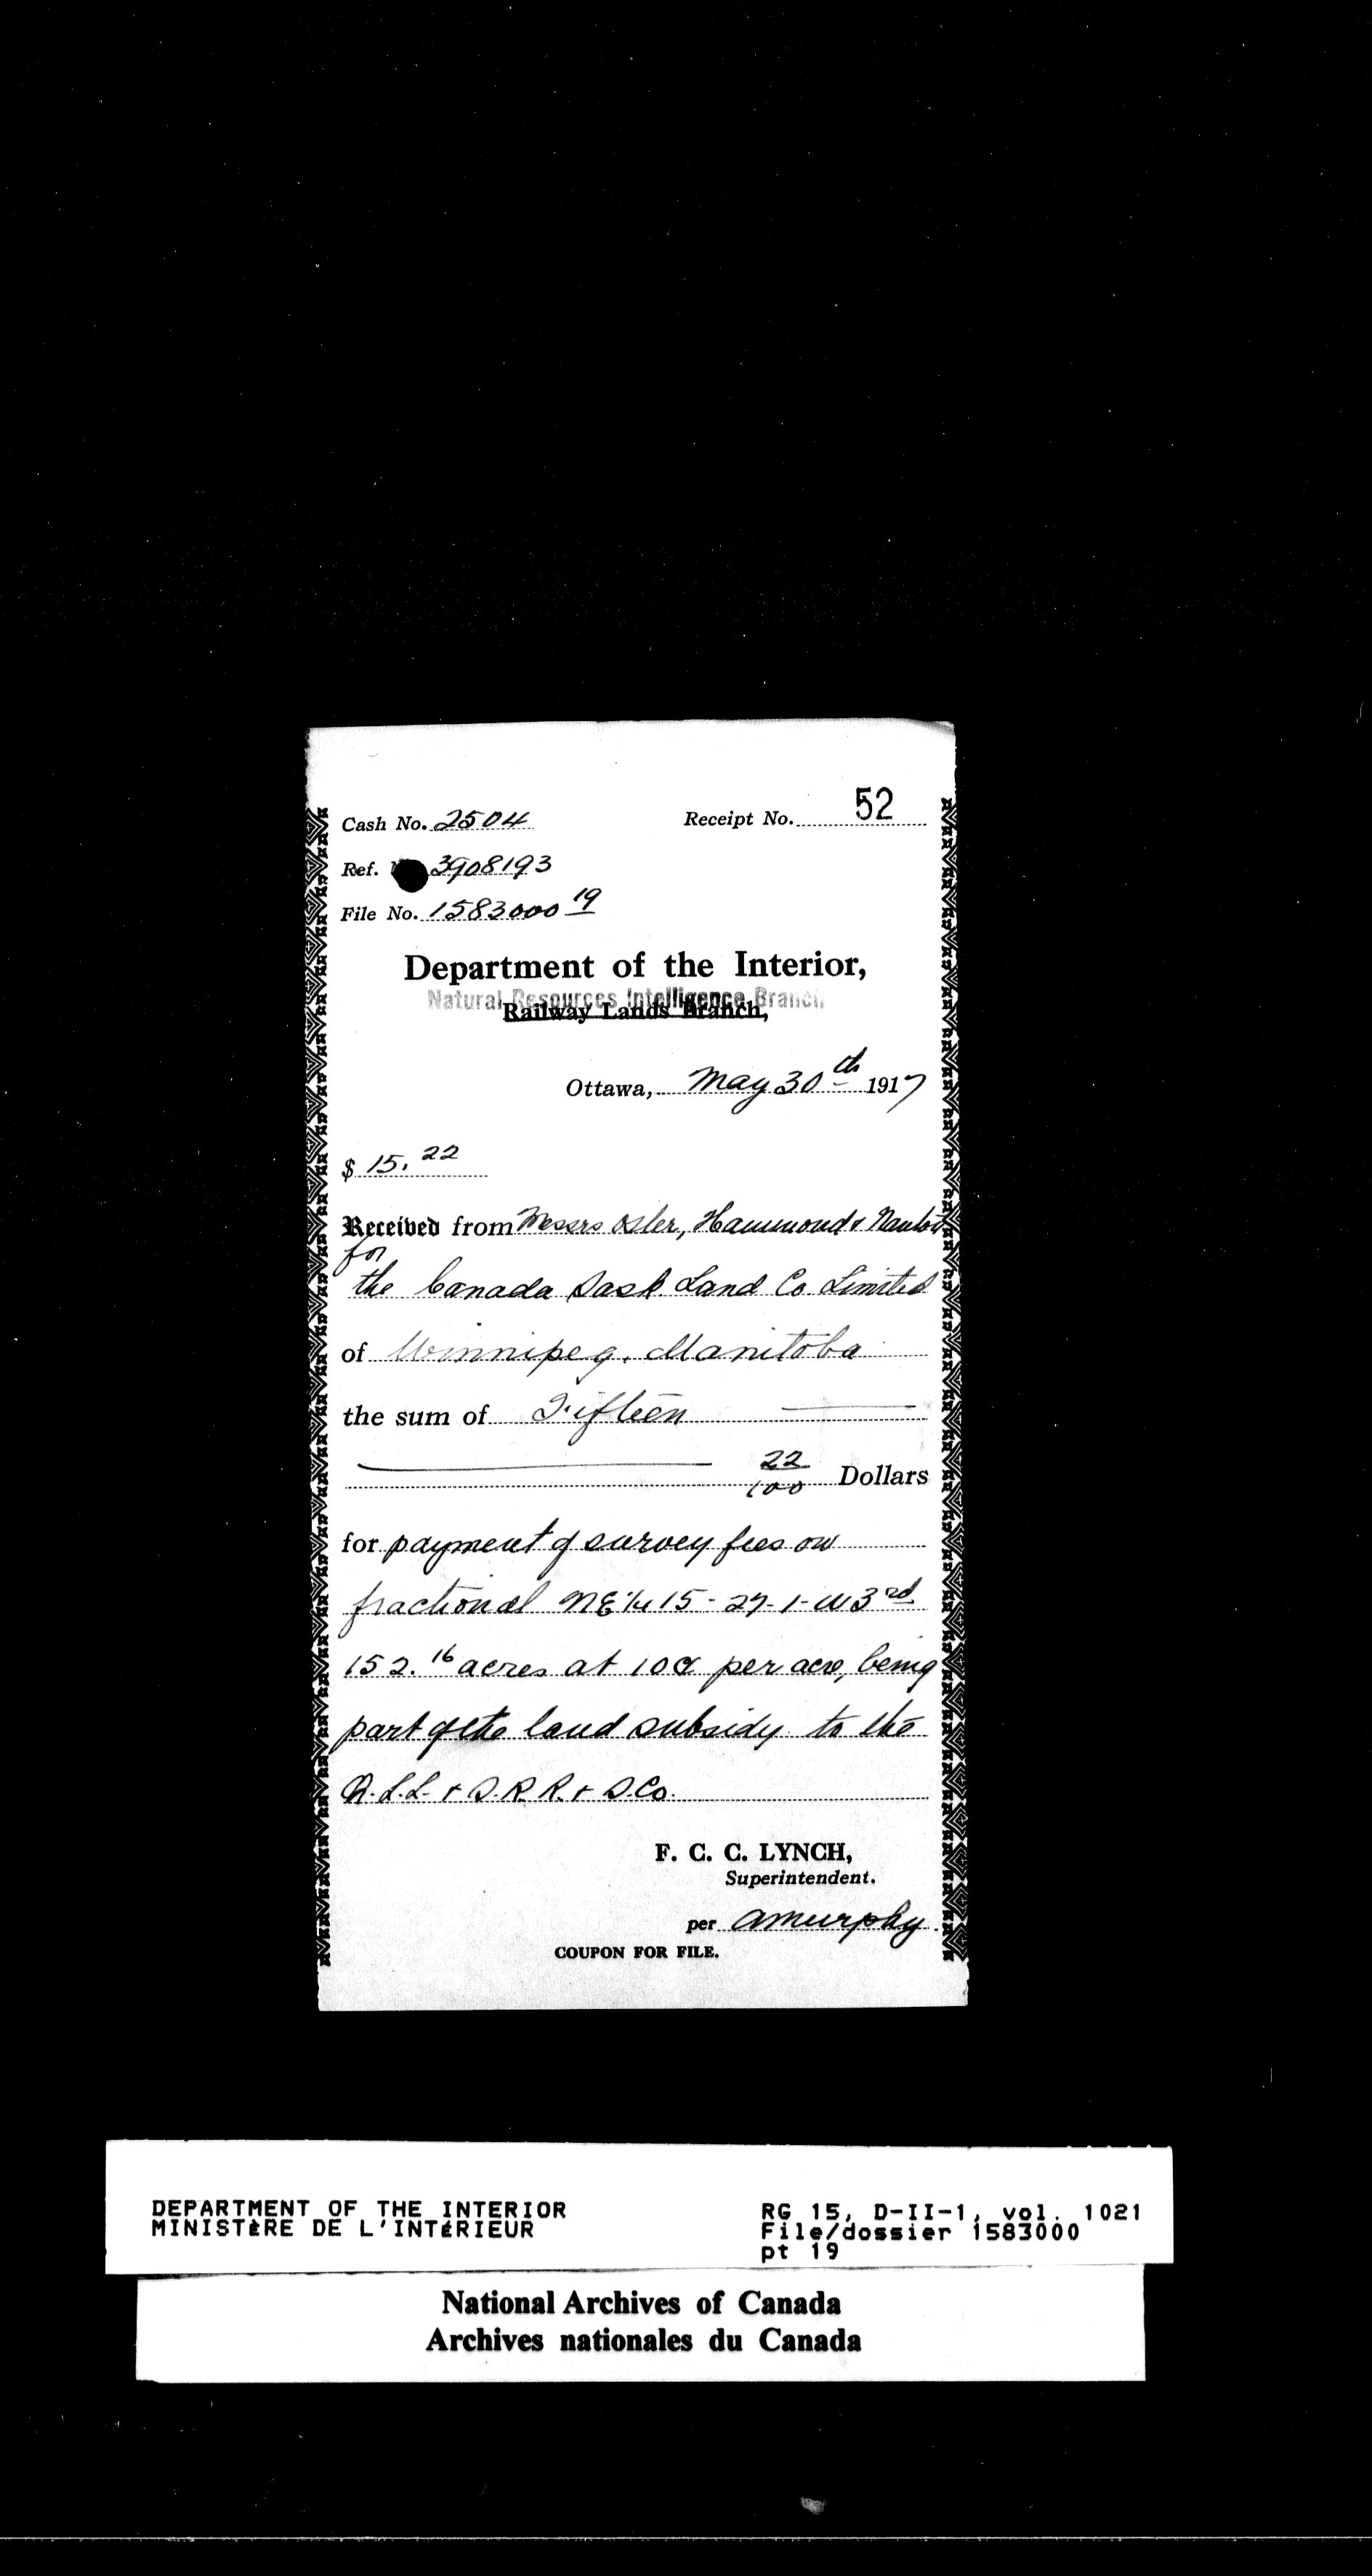 Cash No. 2504 Receipt No. 52
Ref. 3908193
File No. 1583000 19
Department of the Interior,
Natural Resources Intelligence Branch
Railway Lands Branch,
Ottawa, May 30th 1917
$ 15.22
Received from Messrs Osler, Hammond & Nanton
for
the Canada Sask. Land Co. Limited
of Winnipeg, Manitoba
the sum of Fifteen
22/100 Dollars
for payment of survey fees on
fractional NE 1/4 15-27-1-W3rd
152.16 acres at 10¢ per acre, being
part of the land subsidy to the
Q.L.L. & S.R.R. & S.Co.
F. C. C. LYNCH,
Superintendent.
per AMurphy.
COUPON FOR FILE.
DEPARTMENT OF THE INTERIOR RG 15, D-II-1, vol. 1021
MINISTÈRE DE L'INTÉRIEUR File/dossier 1583000
pt 19
National Archives of Canada
Archives nationales du Canada